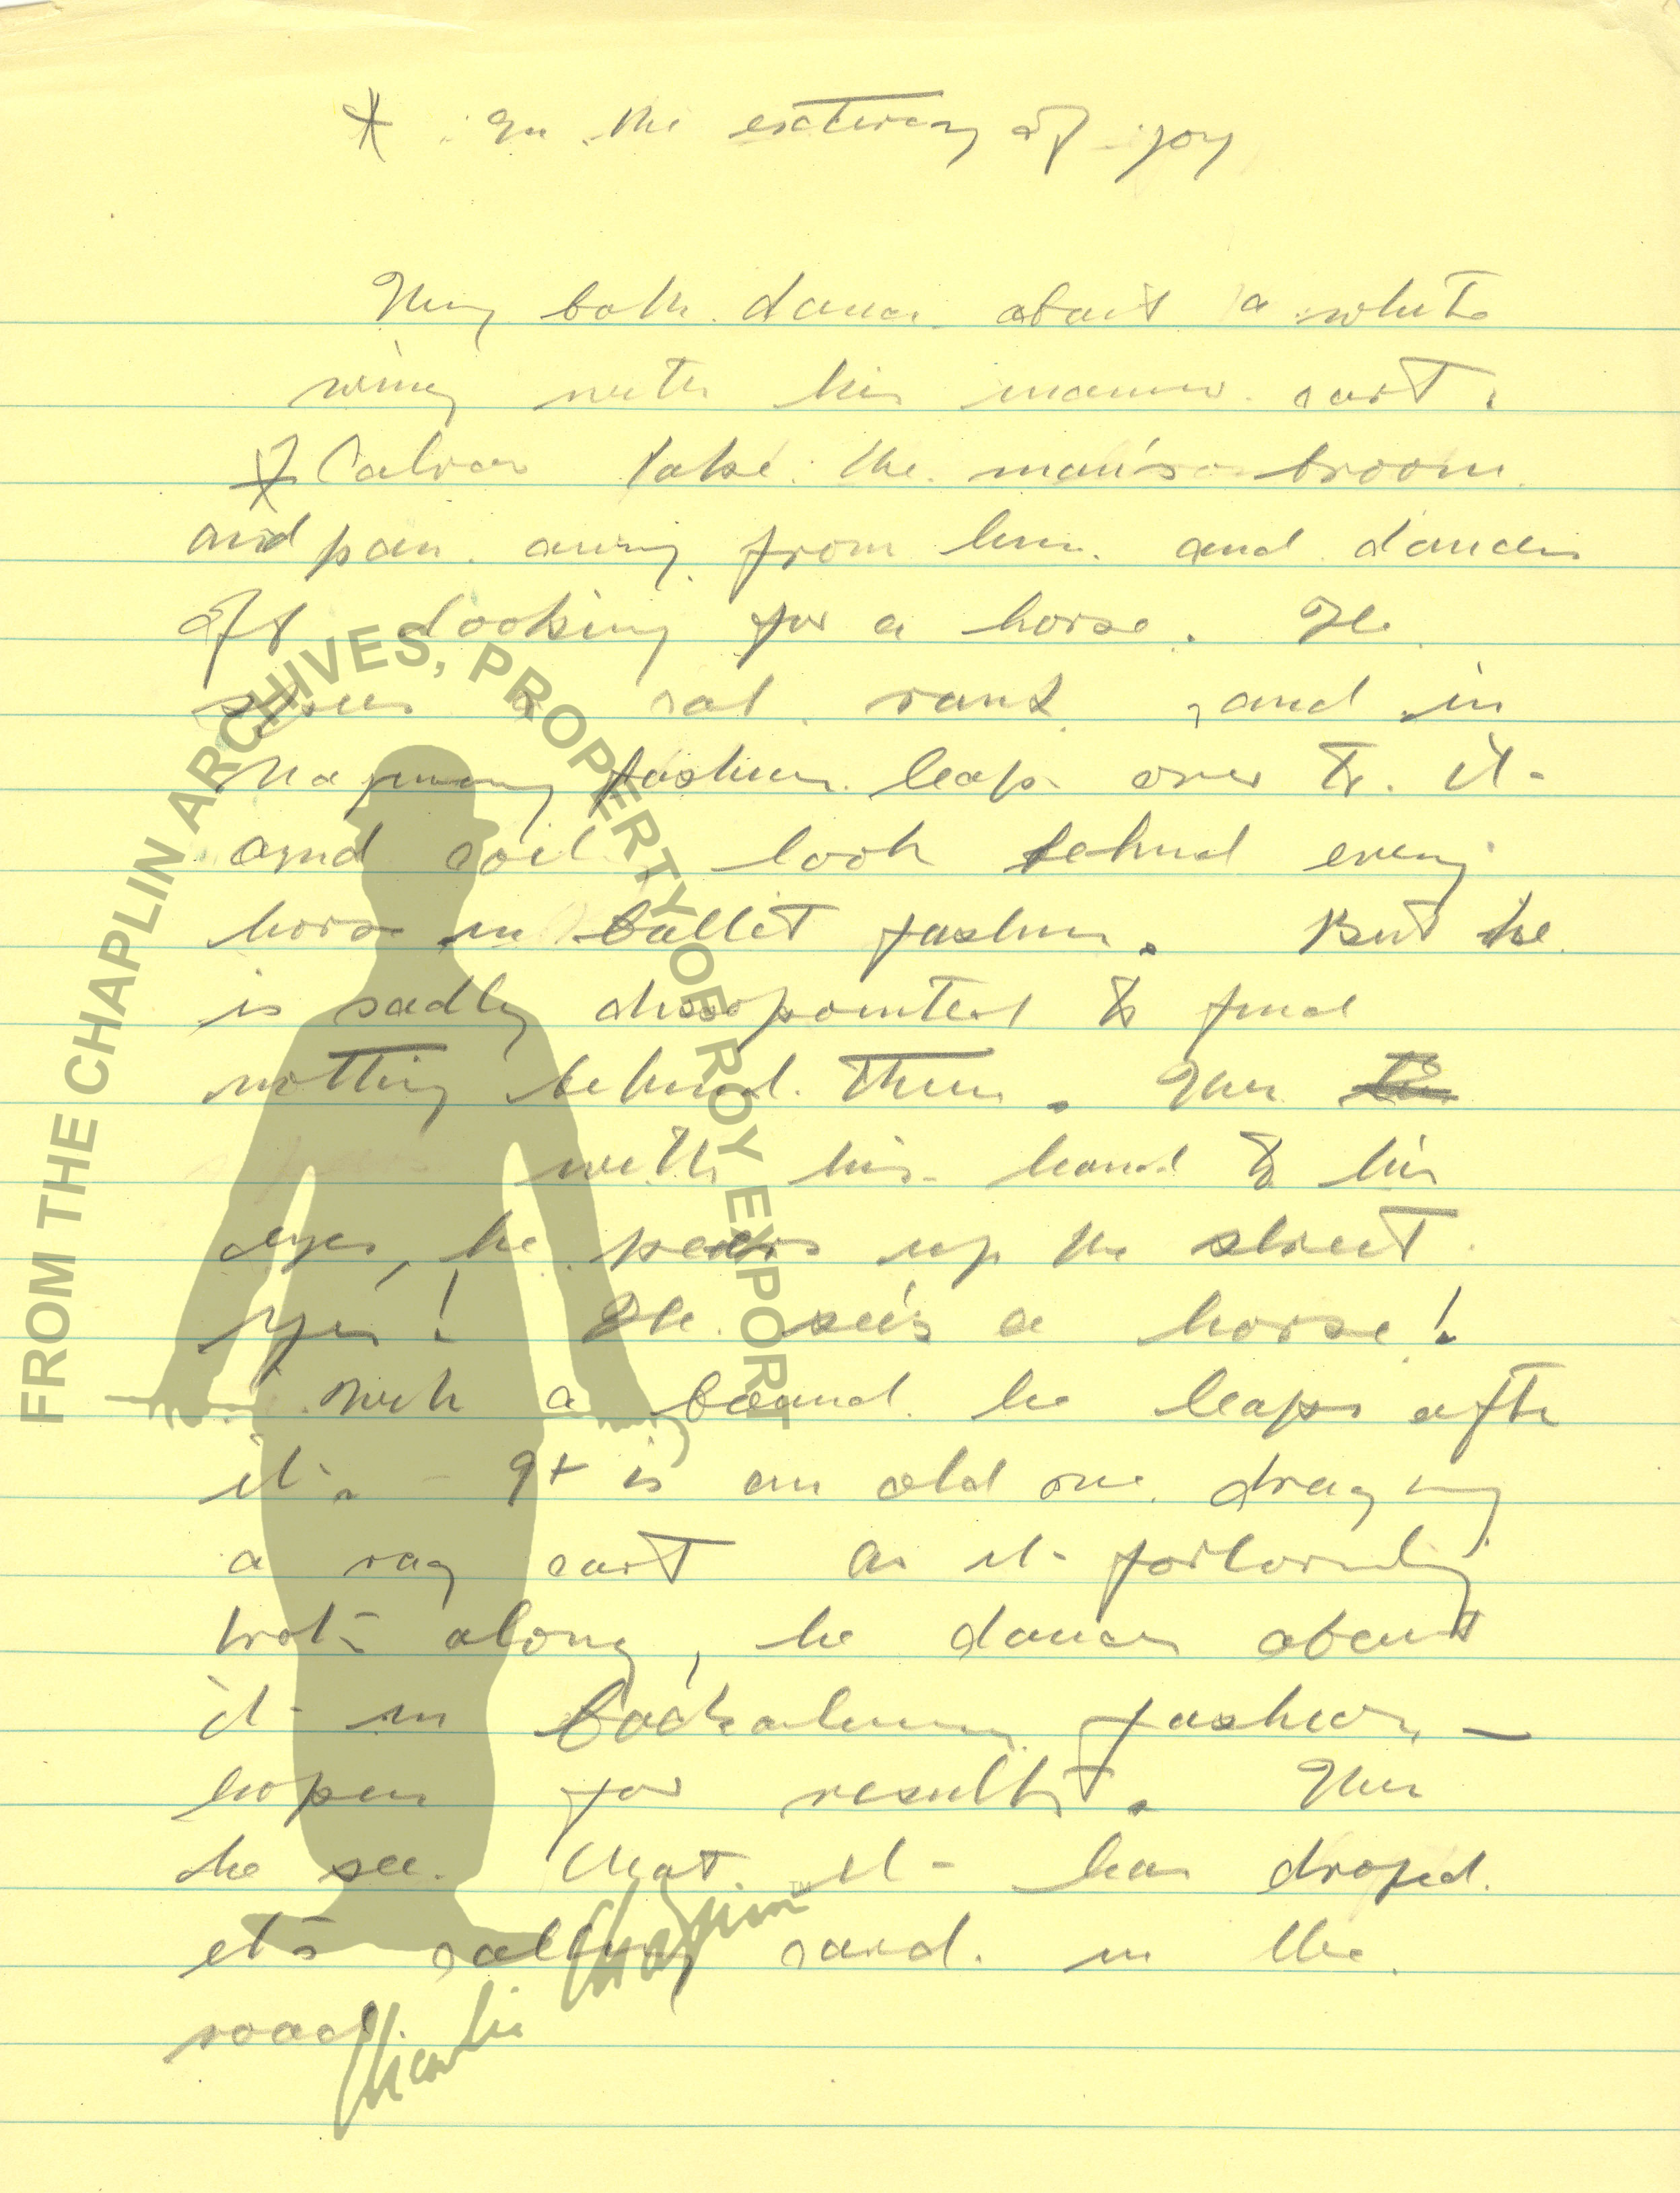 * In the extacy of joy
They both dance about a white
wing with his manure cart.
* Calvero take the man's broom
and pan away from him and dances
off looking for a horse. He
a cab rank, and in
fashion leaps over to it
and look behind every
horse in ballet fashion. But he
is sadly dissopointed to find
nothing behind them. Then
with his hand to his
eyes, he peers up the street
Yes! He sees a horse!
With a bound he leaps after
it. It is an old one draging
a rag cart as it forlornly
trots along, he dances about
it in fashion –
hopen for results. Then
he see that it has droped
its calling card in the
road.
FROM THE CHAPLIN ARCHIVES, PROPERTY OF ROY EXPORT
Charlie Chaplin™